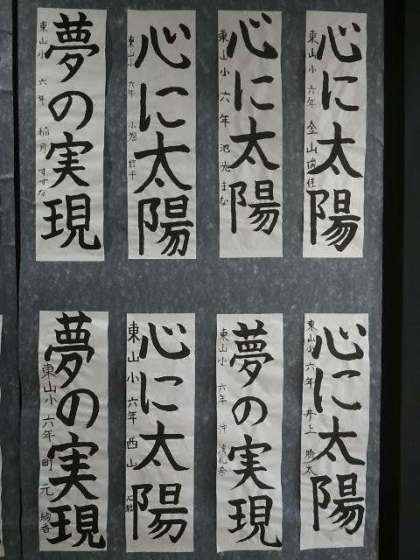 心に太陽
東山小 六年 金山
心に太陽
東山小 六年 まな
心に太陽
東山小 六年
夢の実現
東山小 六年 すずな
心に太陽
東山小 六年 井上
夢の実現
東山小 六年 沖
心に太陽
東山小 六年 西山
夢の実現
東山小 六年 町元